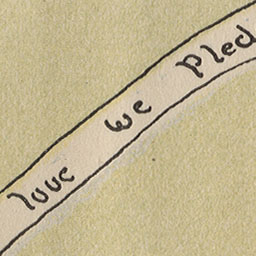 love we Pled